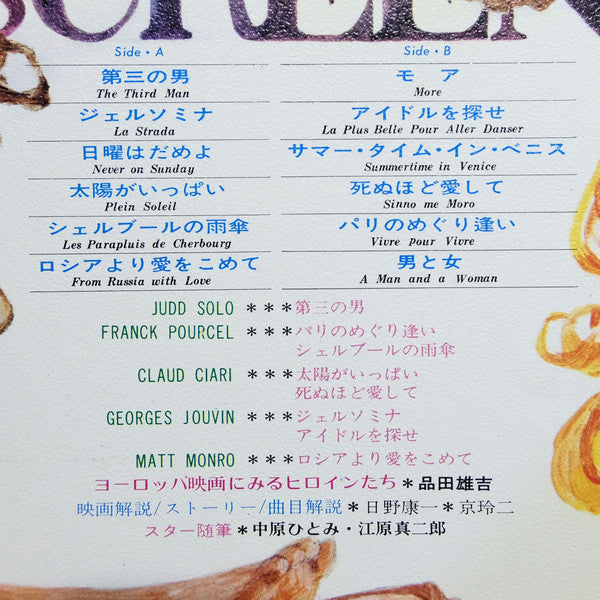 SCREEN
Side・A
第三の男
The Third Man
ジェルソミナ
La Strada
日曜はだめよ
Never on Sunday
太陽がいっぱい
Plein Soleil
シェルブールの雨傘
Les Parapluis de Cherbourg
ロシアより愛をこめて
From Russia with Love
Side・B
モア
More
アイドルを探せ
La Plus Belle Pour Aller Danser
サマー・タイム・イン・ベニス
Summertime in Venice
死ぬほど愛して
Sinno me Moro
パリのめぐり逢い
Vivre pour Vivre
男と女
A Man and a Woman
JUDD SOLO ＊＊＊第三の男
FRANCK POURCEL ＊＊＊パリのめぐり逢い
シェルブールの雨傘
CLAUD CIARI ＊＊＊太陽がいっぱい
死ぬほど愛して
GEORGES JOUVIN ＊＊＊ジェルソミナ
アイドルを探せ
MATT MONRO ＊＊＊ロシアより愛をこめて
ヨーロッパ映画にみるヒロインたち＊品田雄吉
映画解説/ストーリー/曲目解説＊日野康一＊京玲二
スター随筆＊中原ひとみ・江原真二郎